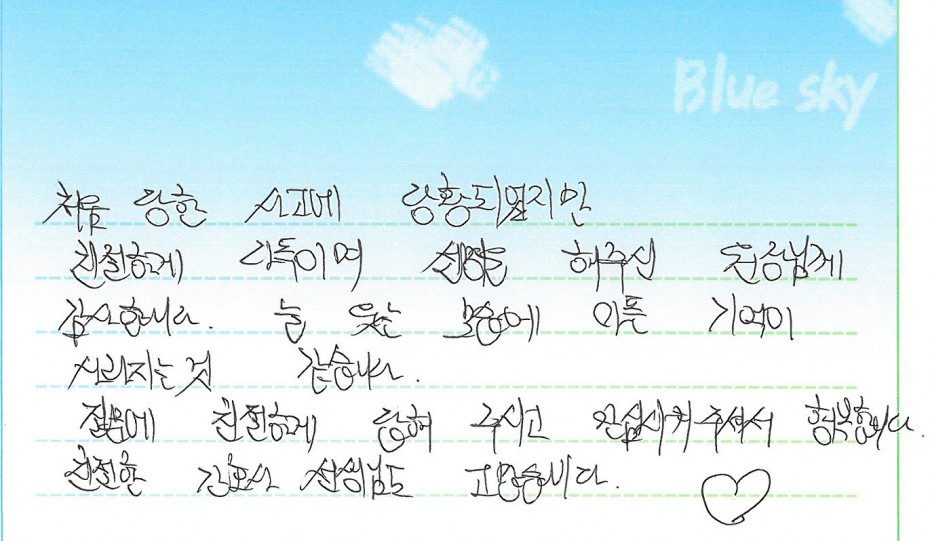 Blue sky
처음 당한 사고에 당황되었지만
친절하게 다독이며 설명을 해주신 원장님께
감사합니다. 늘 웃는 모습에 아픈 기억이
사라지는것 같습니다.
질문에 친절하게 답해 주시고 안심시켜주셔서 행복합니다.
친절한 간호사 선생님도 고맙습니다.